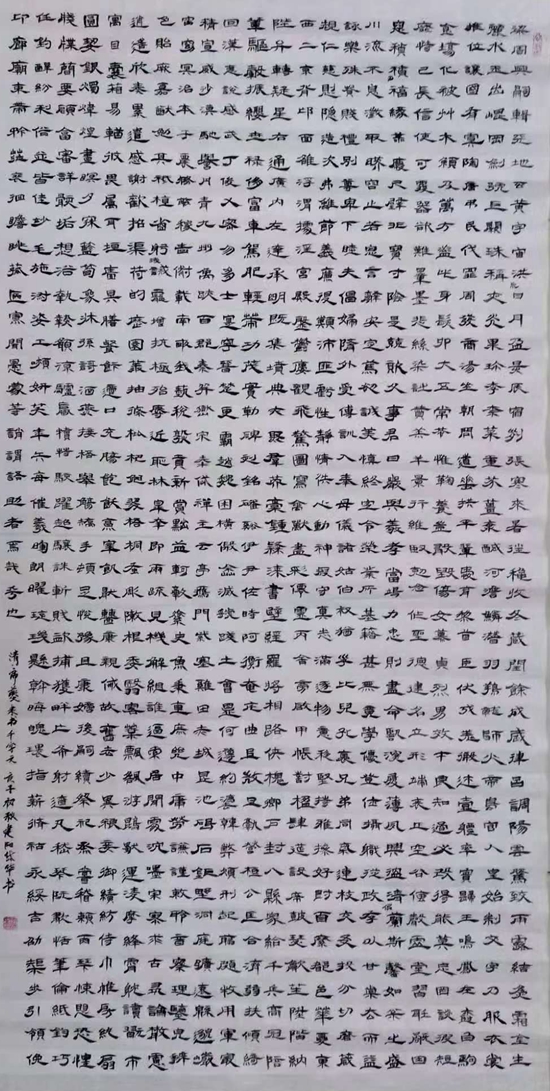 梁周興嗣天地玄黃宇宙洪荒日月盈昃辰宿列張寒來暑往秋收冬藏閏餘成歲律呂調陽雲騰致雨露結為霜金生
麗水玉出崑岡劍號巨闕珠稱夜光果珍李柰菜重芥薑海鹹河淡鱗潛羽翔龍師火帝鳥官人皇始制文字乃服衣裳
推位讓國有虞陶唐弔民伐罪周發殷湯坐朝問道垂拱平章愛育黎首臣伏戎羌遐邇壹體率賓歸王鳴鳳在樹白駒
食場化被草木賴及萬方蓋此身髮四大五常恭惟鞠養豈敢毀傷女慕貞潔男效才良知過必改得能莫忘罔談彼短
靡恃己長信使可覆器欲難量墨悲絲染詩讚羔羊景行維賢克念作聖德建名立形端表正空谷傳聲虛堂習聽禍因
惡積福緣善慶尺璧非寶寸陰是競資父事君曰嚴與敬孝當竭力忠則盡命臨深履薄夙興溫凊似蘭斯馨如松之盛
川流不息淵澄取映容止若思言辭安定篤初誠美慎終宜令榮業所基籍甚無竟學優登仕攝職從政存以甘棠去而益
詠樂殊貴賤禮別尊卑上和下睦夫唱婦隨外受傅訓入奉母儀諸姑伯叔猶子比兒孔懷兄弟同氣連枝交友投分切磨箴
規仁慈隱惻造次弗離節義廉退顛沛匪虧性靜情逸心動神疲守真志滿逐物意移堅持雅操好爵自縻都邑華夏東
西二京背邙面洛浮渭據涇宮殿盤鬱樓觀飛驚圖寫禽獸畫彩仙靈丙舍傍啟甲帳對楹肆筵設席鼓瑟吹笙升階納
陛弁轉疑星右通廣內左達承明既集墳典亦聚群英杜稿鍾隸漆書壁經府羅將相路俠槐卿戶封八縣家給千兵高冠陪
輦驅轂振纓世祿侈富車駕肥輕策功茂實勒碑刻銘磻溪伊尹佐時阿衡奄宅曲阜微旦孰營桓公匡合濟弱扶傾綺
回漢惠說感武丁俊乂密勿多士寔寧晉楚更霸趙魏困橫假途滅虢踐土會盟何遵約法韓弊煩刑起翦頗牧用軍最
精宣威沙漠馳譽丹青九州禹跡百郡秦并嶽宗泰岱禪主云亭雁門紫塞雞田赤城昆池碣石鉅野洞庭曠遠綿邈巖
岫杳冥治本於農務茲稼穡俶載南畝我藝黍稷稅熟貢新勸賞黜陟孟軻敦素史魚秉直庶幾中庸勞謙謹敕聆音察理鑒貌辨
色貽厥嘉猷勉其祗植省躬譏誡寵增抗極殆辱近恥林皋幸即兩疏見機解組誰逼索居閒處沉默寂寥求古尋論散慮
逍遙欣奏累遣慼謝歡招渠荷的歷園莽抽條枇杷晚翠梧桐早凋陳根委翳落葉飄颻遊鵾獨運凌摩絳霄耽讀翫市
寓目囊箱易輶攸畏屬耳垣牆具膳餐飯適口充腸飽飫烹宰飢厭糟糠親戚故舊老少異糧妾御績紡侍巾帷房紈扇
圓潔銀燭煒煌晝眠夕寐藍筍象床弦歌酒宴接杯舉觴矯手頓足悅豫且康嫡後嗣續祭祀蒸嘗稽顙再拜悚懼恐惶
牋牒簡要顧答審詳骸垢想浴執熱願涼驢騾犢特駭躍超驤誅斬賊盜捕獲叛亡布射僚丸嵇琴阮嘯恬筆倫紙鈞巧
任釣釋紛利俗並皆佳妙毛施淑姿工顰妍笑年矢每催羲暉朗曜璇璣懸斡晦魄環照指薪修祜永綏吉劭矩步引領俯
仰廊廟束帶矜莊徘徊瞻眺孤陋寡聞愚蒙等誚謂語助者焉哉乎也
書千字文庚子初秋建陽徐華書